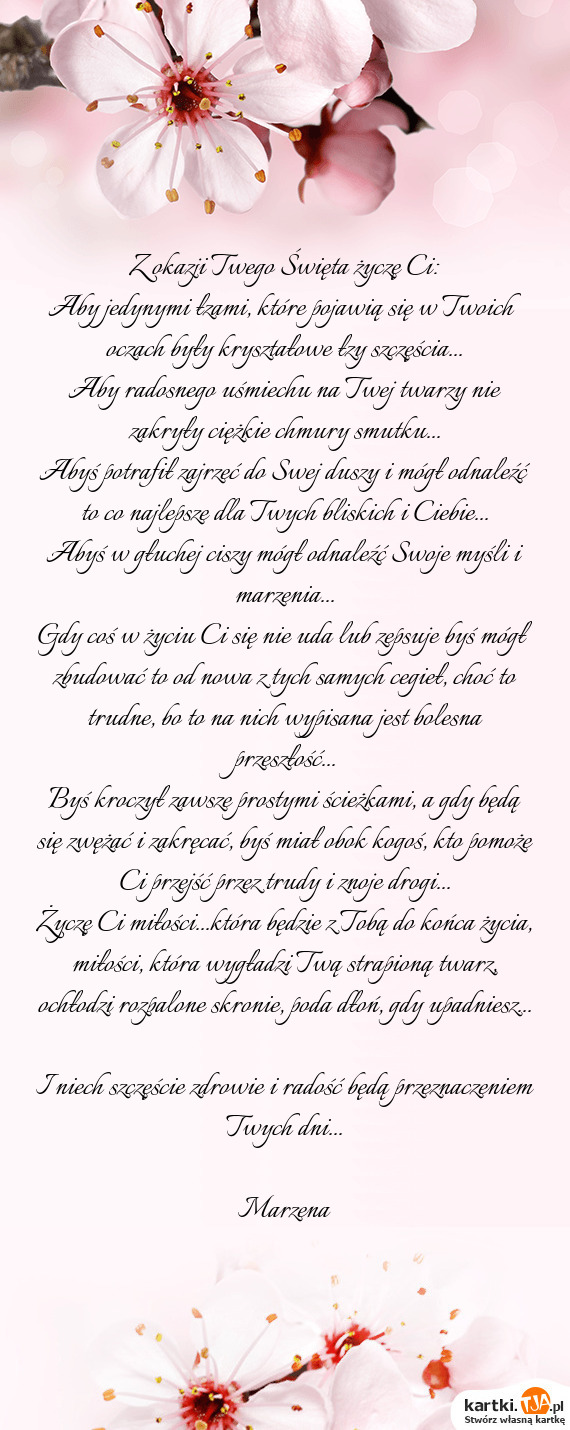 Z okazji Twego Święta życzę Ci:
Aby jedynymi łzami, które pojawią się w Twoich
oczach były kryształowe łzy szczęścia...
Aby radosnego uśmiechu na Twej twarzy nie
zakryły ciężkie chmury smutku...
Abyś potrafił zajrzeć do Swej duszy i mógł odnaleźć
to co najlepsze dla Twych bliskich i Ciebie...
Abyś w głuchej ciszy mógł odnaleźć Swoje myśli i
marzenia...
Gdy coś w życiu Ci się nie uda lub zepsuje byś mógł
zbudować to od nowa z tych samych cegieł, choć to
trudne, bo to na nich wypisana jest bolesna
przeszłość...
Byś kroczył zawsze prostymi ścieżkami, a gdy będą
się zwężać i zakręcać, byś miał obok kogoś, kto pomoże
Ci przejść przez trudy i znoje drogi...
Życzę Ci miłości...która będzie z Tobą do końca życia,
miłości, która wygładzi Twą strapioną twarz,
ochłodzi rozpalone skronie, poda dłoń, gdy upadniesz...
I niech szczęście zdrowie i radość będą przeznaczeniem
Twych dni...
Marzena
kartki.TJA.pl
Stwórz własną kartkę